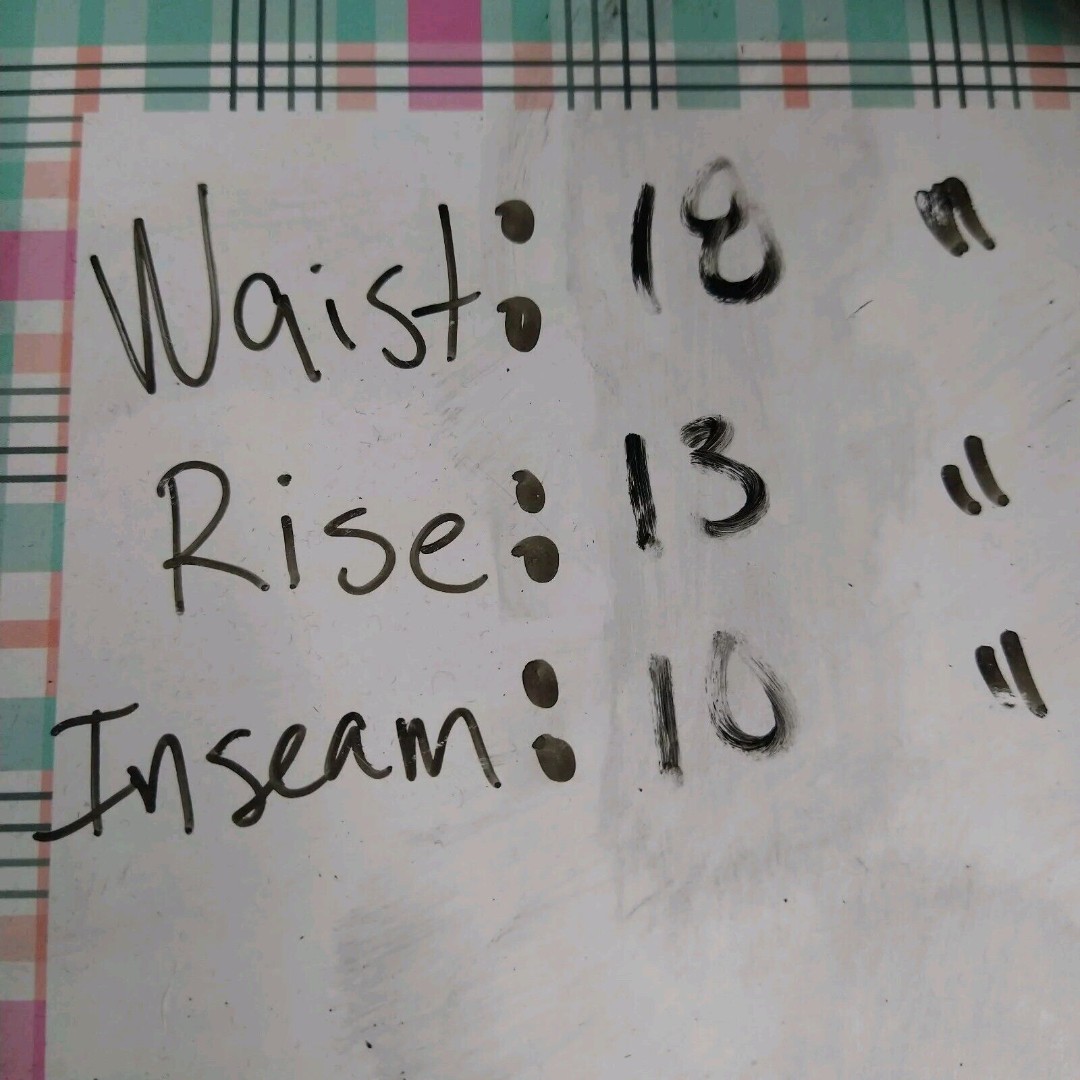 Waist: 18 "
Rise: 13 "
Inseam: 10 "